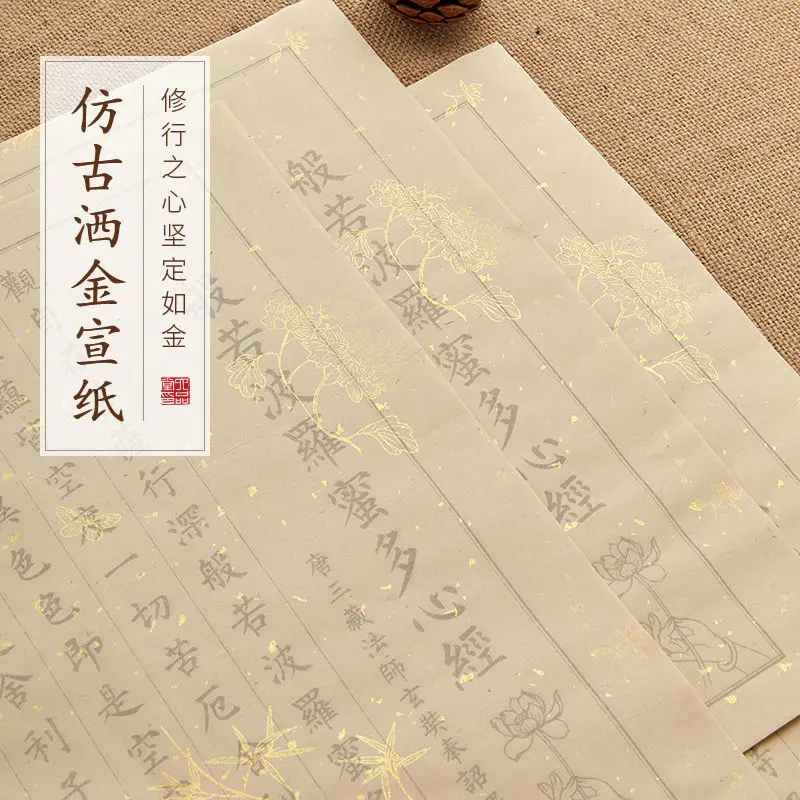 仿古洒金宣纸
修行之心坚定如金
般若波羅蜜多心經
般若波羅蜜多心經
唐三藏法師玄奘奉詔
觀自
行深般若波羅蜜
蘊
空度一切苦厄舍
色色即是空
舍利子